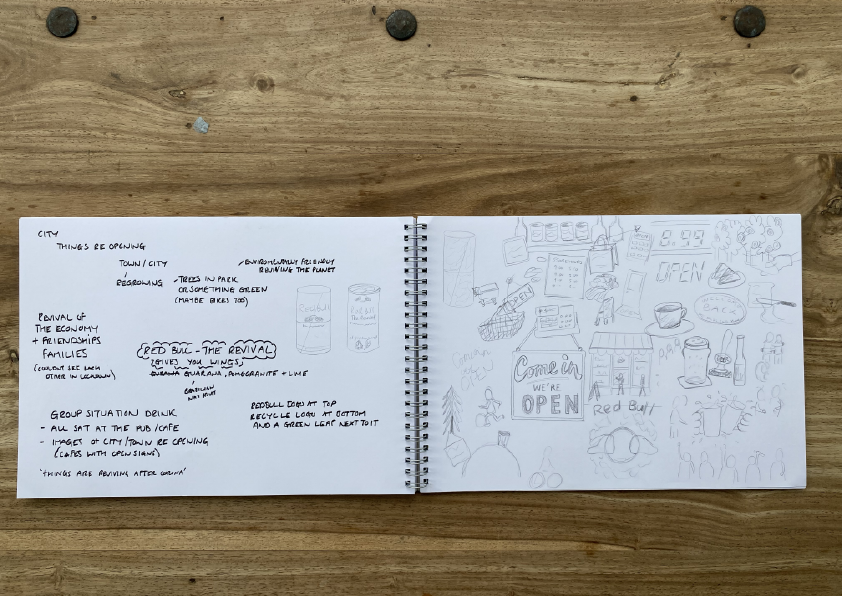 CITY
THINGS RE OPENING
TOWN/CITY
REGROWING
TREES IN PARK
OR SOMETHING GREEN
(MAYBE BIKES TOO)
ENVIRONMENTALLY FRIENDLY
REVIVING THE PLANET
REVIVAL OF
THE ECONOMY
+ FRIENDSHIPS
FAMILIES
(COULDN'T SEE EACH
OTHER IN LOCKDOWN)
RED BULL - THE REVIVAL
(GIVES YOU WINGS)
GUARANA, POMOGRANITE + LIME
BRAZILIAN
GROUP SITUATION DRINK
- ALL SAT AT THE PUB/CAFE
- IMAGES OF CITY/TOWN RE OPENING
(CAFES WITH OPEN SIGNS)
'THINGS ARE REVIVING AFTER CORONA'
REDBULL LOGO AT TOP
RECYCLE LOGO AT BOTTOM
AND A GREEN LEAF NEXT TO IT
RedBull
8.99
OPEN
OPEN
Come in
WE'RE
OPEN
Red Bull